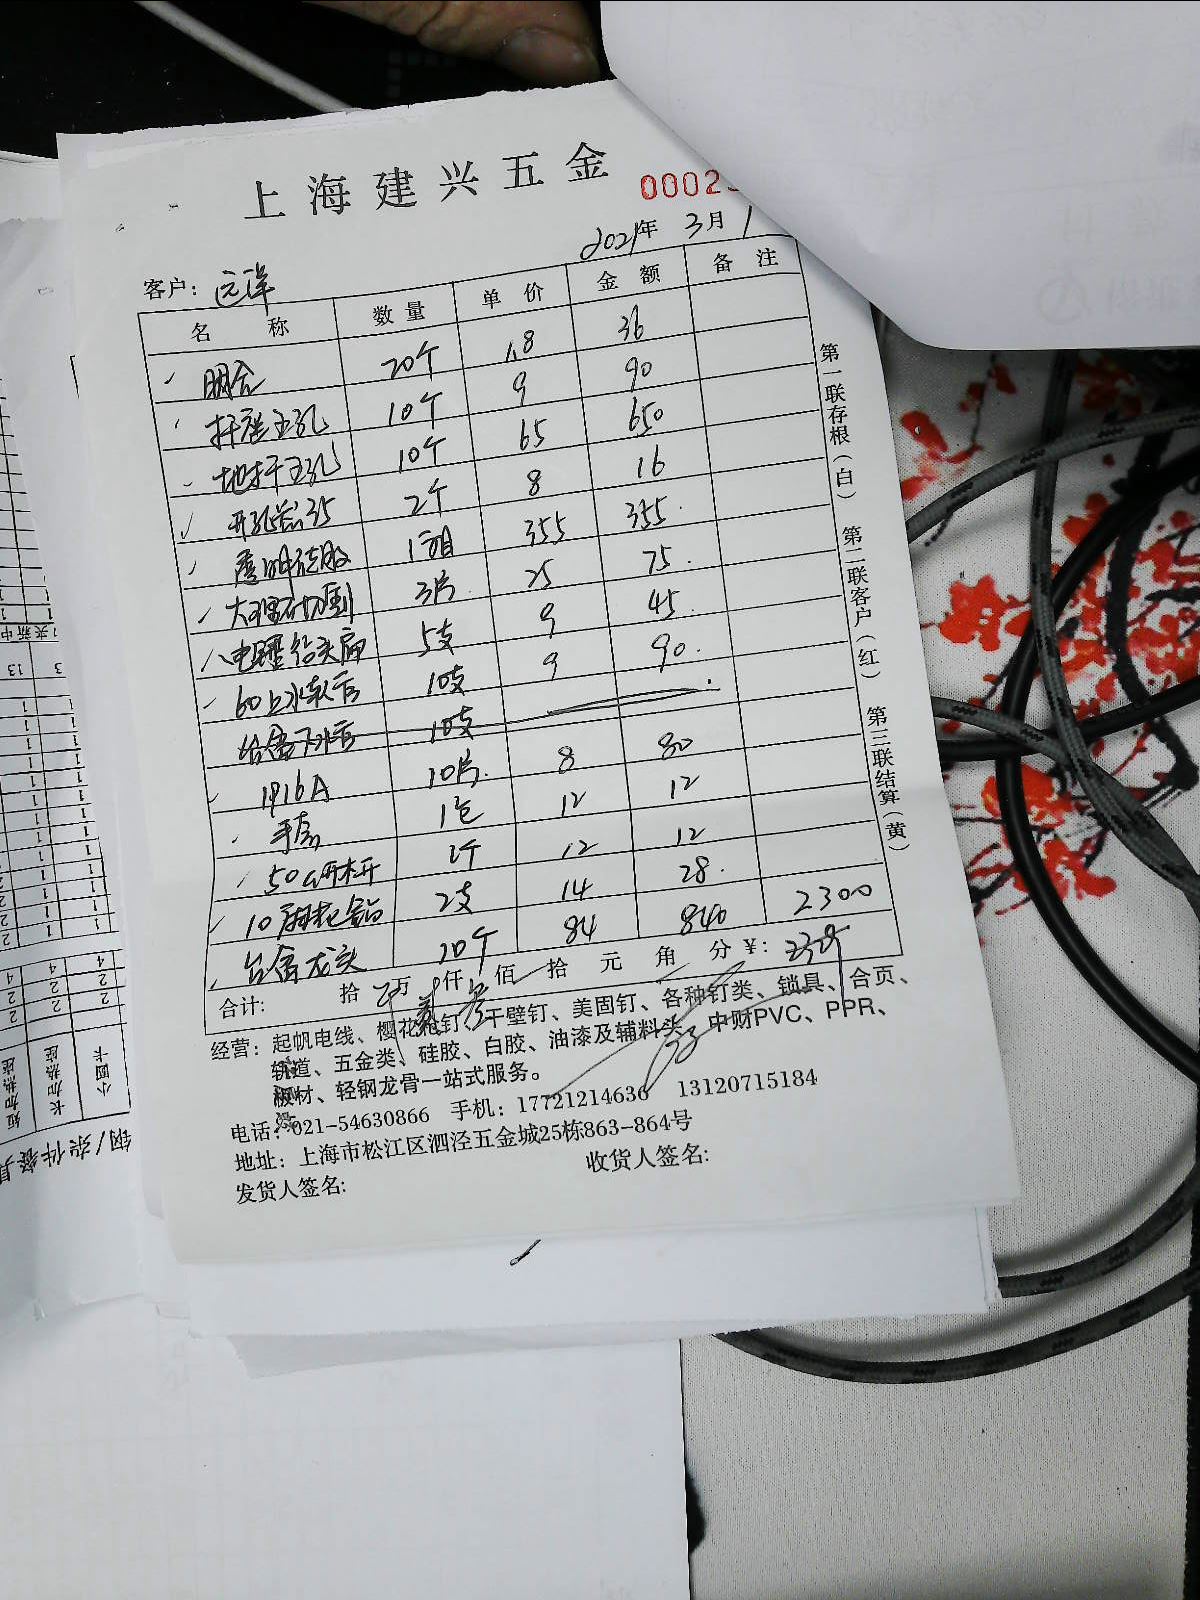 上海建兴五金
0002
2021年 3月 1
客户: 远洋
名称 数量 单价 金额 备注
明盒 20个 1.8 36
插座五孔 10个 9 90
地插五孔 10个 65 650
开孔器35 2个 8 16
透明硅胶 1箱 355 355.
大理石切割 3片 25 75.
电锤钻头扁 5支 9 45.
60上水软管 10支 9 90.
台盆下水管 10支
1916A 10片. 8 80
手套 1包 12 12
50 12 12
10麻花钻 2支 14 28.
台盆龙头 10个 84 840 2300
合计: 拾 万 仟 佰 拾 元 角 分 ¥:
第一联存根(白) 第二联客户(红) 第三联结算(黄)
经营: 起帆电线、樱花枪钉、干壁钉、美固钉、各种钉类、锁具、合页、
轨道、五金类、硅胶、白胶、油漆及辅料类、中财PVC、PPR、
板材、轻钢龙骨一站式服务。
电话: 021-54630866 手机: 17721214636 13120715184
地址: 上海市松江区泗泾五金城25栋863-864号
发货人签名: 收货人签名:
短加热座 2 2 4
长加热座 2 2 4
小圆卡 2 2 4